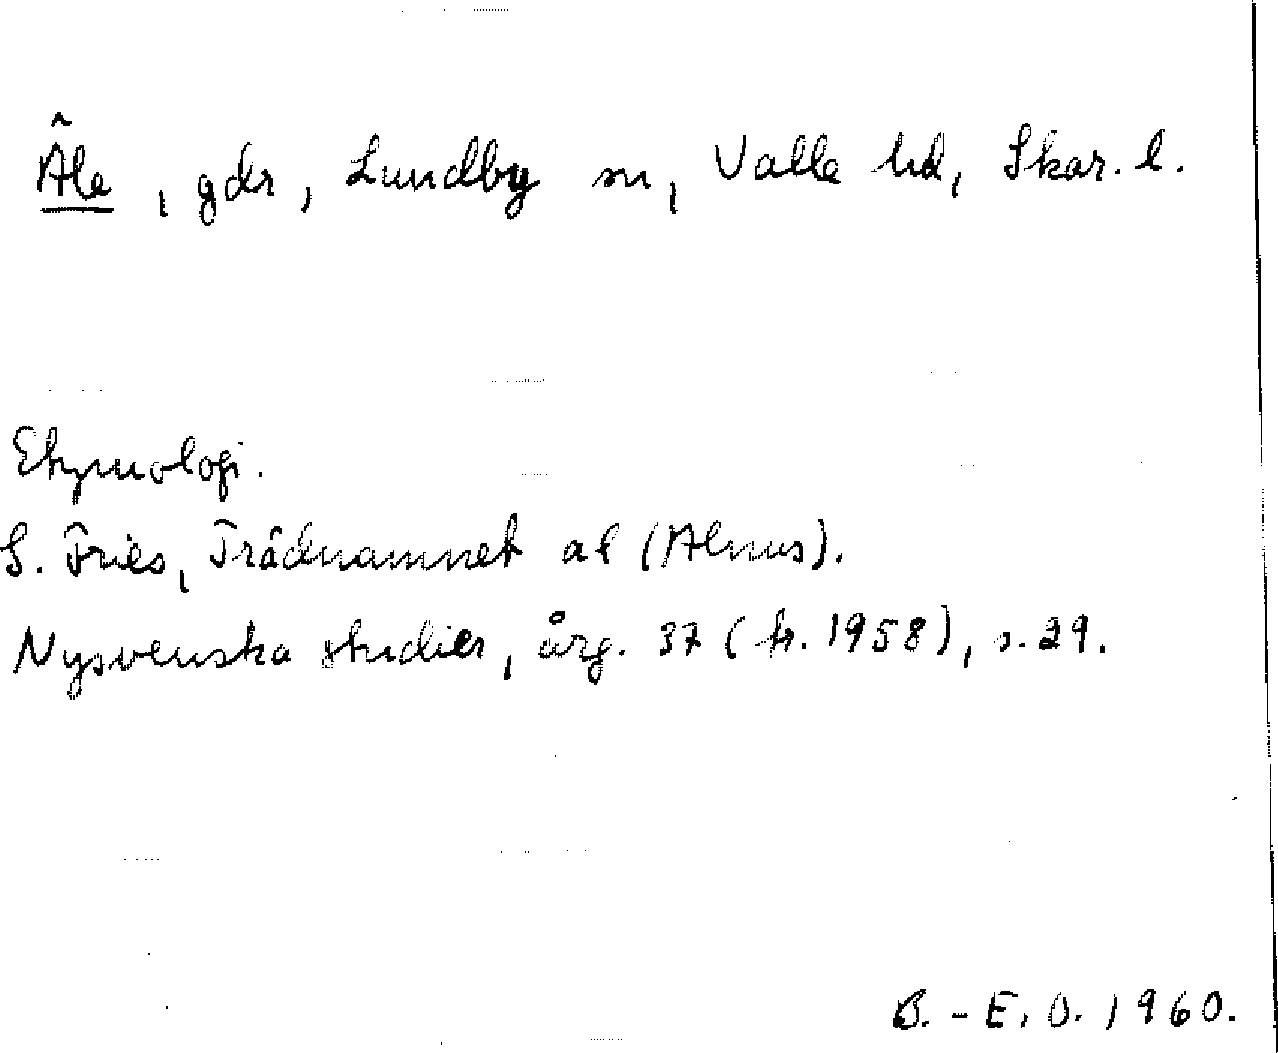 Äle, gdr, Lundby sn, Valle hd, Skar. l.
Etymologi.
S. Fries, Trädnamnet al (Alnus).
Nysvenska studier, årg. 37 (tr. 1958), s. 29.
B.-E. O. 1960.